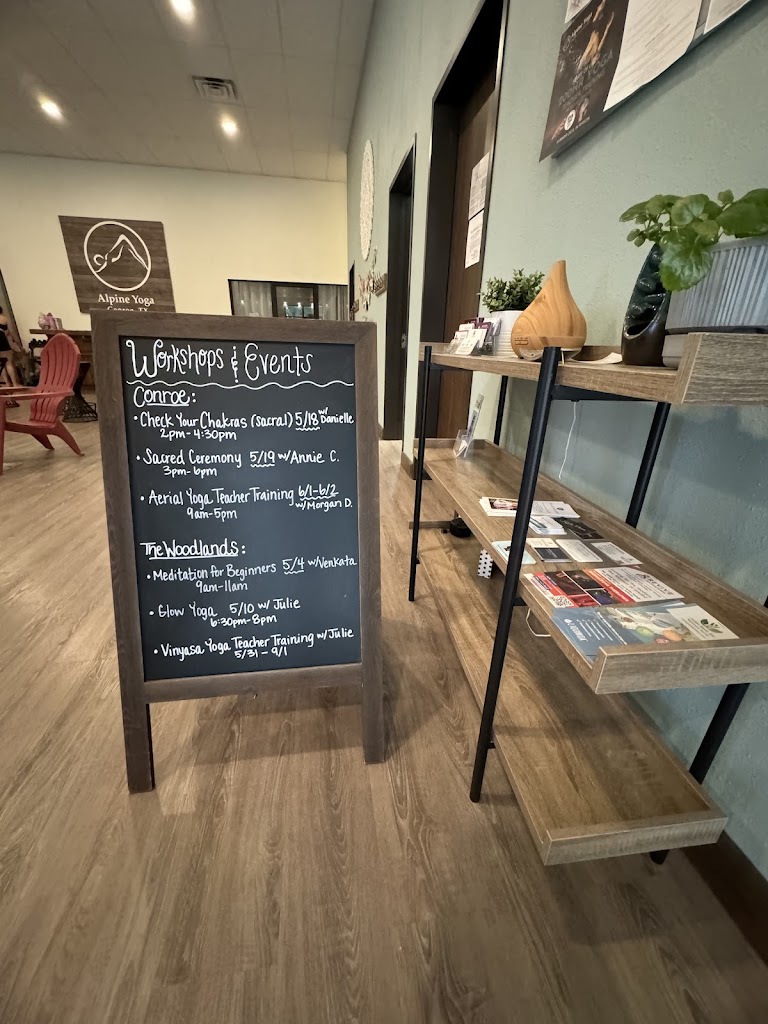 Alpine Yoga
Conroe, TX
Workshops & Events
Conroe:
• Check Your Chakras (Sacral) 5/18 w/ Danielle
2pm-4:30pm
• Sacred Ceremony 5/19 w/Annie C.
3pm-6pm
• Aerial Yoga Teacher Training 6/1-6/2
9am-5pm w/Morgan D.
The Woodlands:
• Meditation for Beginners 5/4 w/Venkata
9am-11am
• Glow Yoga 5/10 w/ Julie
6:30pm-8pm
• Vinyasa Yoga Teacher Training w/Julie
5/31 - 9/1